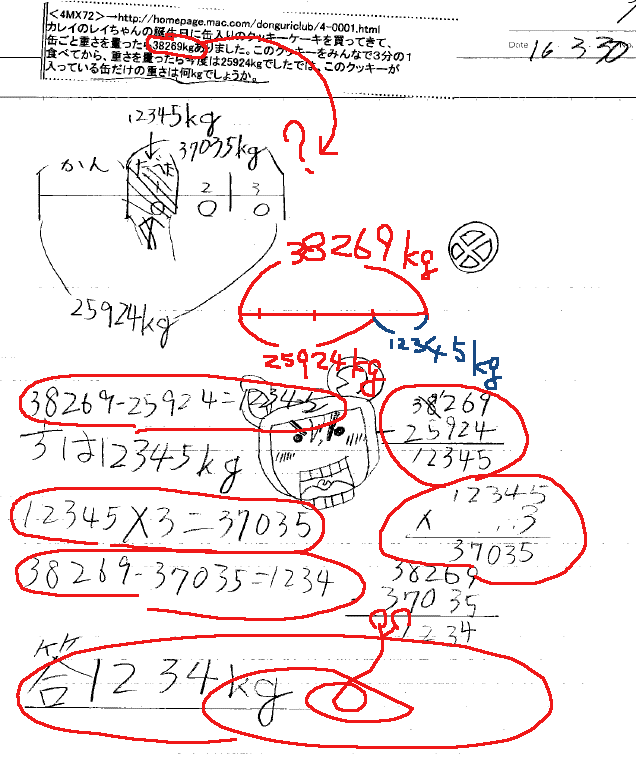 <4MX72>→http://homepage.mac.com/donguriclub/4-0001.html
カレイのレイちゃんの誕生日に缶入りのクッキーケーキを買ってきて、
缶ごと重さを量ったら38269kgありました。このクッキーをみんなで3分の1
食べてから、重さを量ったら今度は25924kgでしたでは、このクッキーが
入っている缶だけの重さは何kgでしょうか。
Date 16.3.30
12345kg
37035kg
?
かん たべた
1 2 3
25924kg
38269kg
25924kg
12345kg
38269-25924=12345
38269
25924
12345
1/3は12345kg
12345×3=37035
12345
× 3
37035
38269-37035=1234
38269
37035
1234
答1234kg